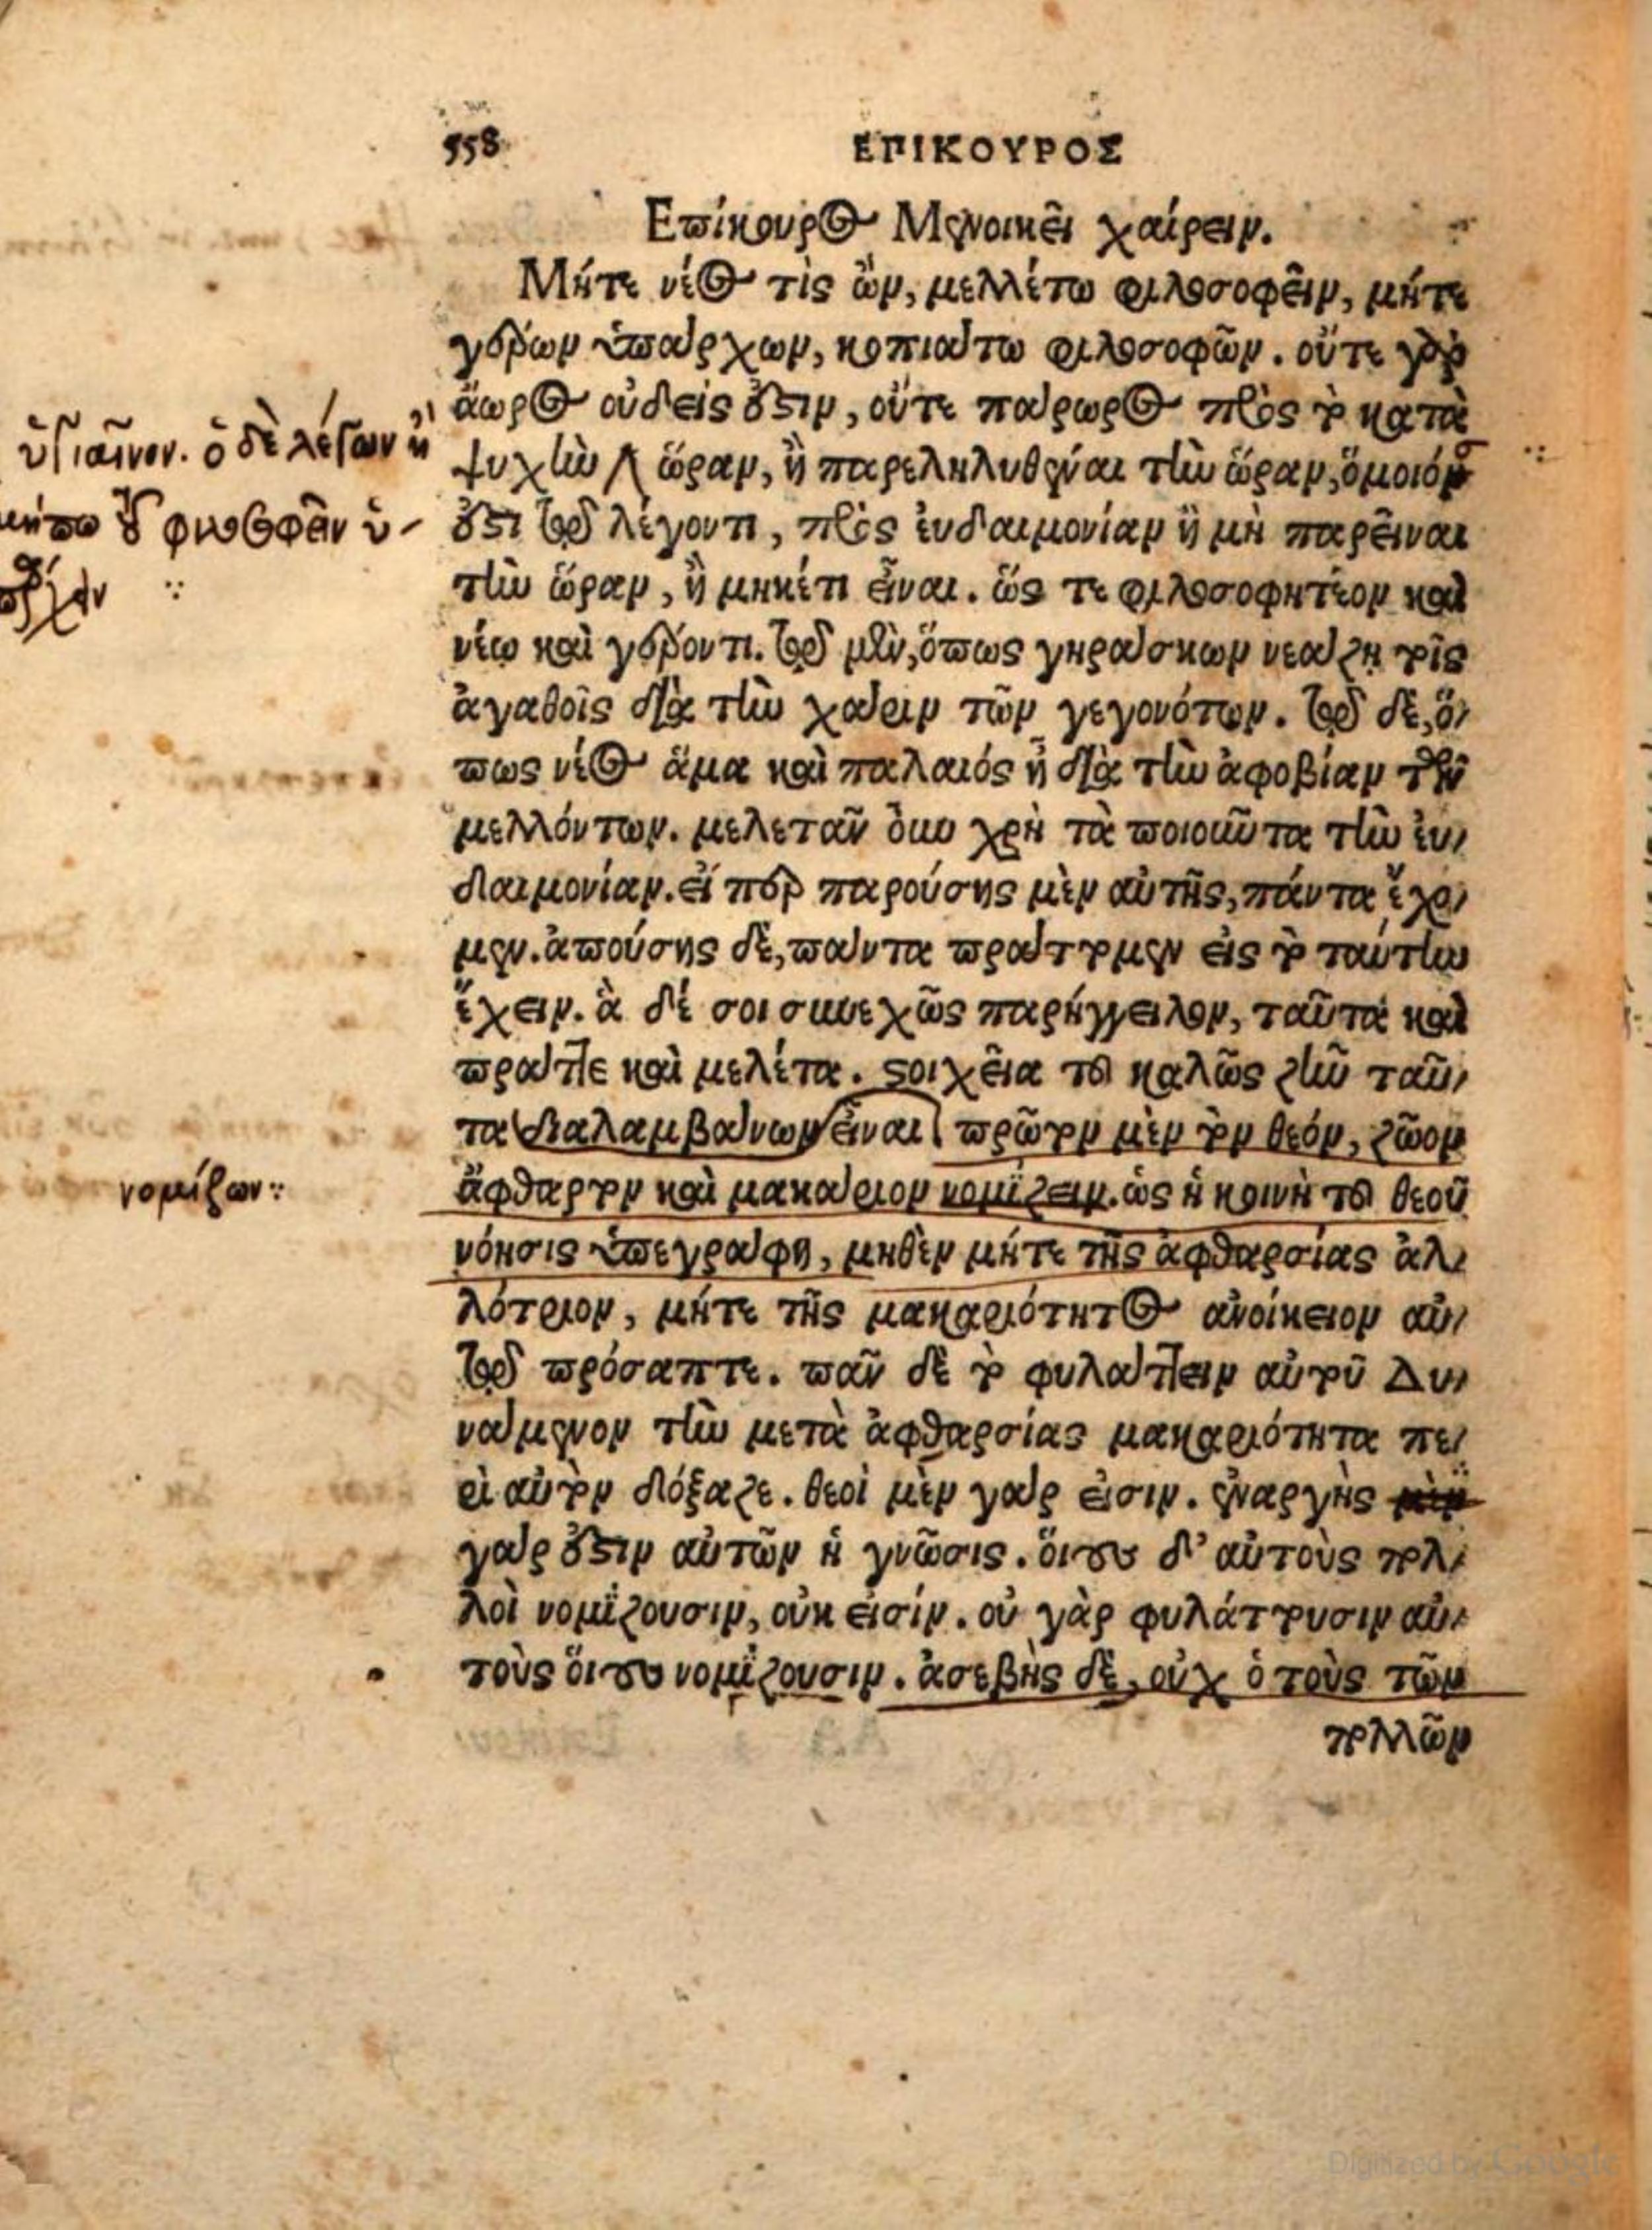 558
ΕΠΙΚΟΥΡΟΣ
Επίκουρος Μενοικεῖ χαίρειν.
Μήτε νέος τὶς ὢν, μελλέτω φιλοσοφεῖν, μήτε
γέρων ὑπάρχων, κοπιάτω φιλοσοφῶν. οὔτε γὰρ
ἄωρος οὐδείς ἐστιν, οὔτε πάρωρος πρὸς τὸ κατὰ
ὑγιαῖνον. ὁ δὲ λέγων ἢ
ψυχὴν ὥραν, ἢ παρεληλυθέναι τὴν ὥραν, ὅμοιόν
μήπω τοῦ φιλοσοφεῖν ὑ-
ἐστι τῷ λέγοντι, πρὸς ἐυδαιμονίαν ἢ μὴ παρεῖναι
πάρχειν
τὴν ὥραν, ἢ μηκέτι εἶναι. ὥς τε φιλοσοφητέον καὶ
νέῳ καὶ γέροντι. τῷ μὲν, ὅπως γηράσκων νεάζῃ τοῖς
ἀγαθοῖς διὰ τὴν χάριν τῶν γεγονότων. τῷ δὲ, ὅ-
πως νέος ἅμα καὶ παλαιός ᾖ διὰ τὴν ἀφοβίαν τῶν
μελλόντων. μελετᾶν ὂυν χρὴ τὰ ποιοῦντα τὴν ἐυ-
δαιμονίαν. εἴ περ παρούσης μὲν αὐτῆς, πάντα ἔχο-
μεν. ἀπούσης δὲ, πάντα πράττομεν εἰς τὸ ταύτην
ἔχειν. ἃ δέ σοι συνεχῶς παρήγγειλον, ταῦτα καὶ
πράττε καὶ μελέτα. στοιχεῖα τοῦ καλῶς ζῆν ταῦ-
τα διαλαμβάνων εἶναι πρῶτον μὲν τὸν θεόν, ζῶον
νομίζων
ἄφθαρτον καὶ μακάριον νομίζειν. ὡς ἡ κοινὴ τοῦ θεοῦ
νόησις ὑπεγράφη, μηθὲν μήτε τῆς ἀφθαρσίας ἀλ-
λότριον, μήτε τῆς μακαριότητος ἀνοίκειον αὐ-
τῷ πρόσαπτε. πᾶν δὲ τὸ φυλάττειν αὐτοῦ Δυ-
νάμενον τὴν μετὰ ἀφθαρσίας μακαριότητα πε-
ρὶ αὐτὸν δόξαζε. θεοὶ μὲν γάρ εἰσιν. ἐναργὴς μὲν
γάρ ἐστιν αὐτῶν ἡ γνῶσις. ὅιους δ' αὐτοὺς πολ-
λοὶ νομίζουσιν, οὐκ εἰσίν. οὐ γὰρ φυλάττουσιν αὐ-
τοὺς ὅιους νομίζουσιν. ἀσεβὴς δὲ, οὐχ ὁ τοὺς τῶν
πολλῶν
Digitized by Google